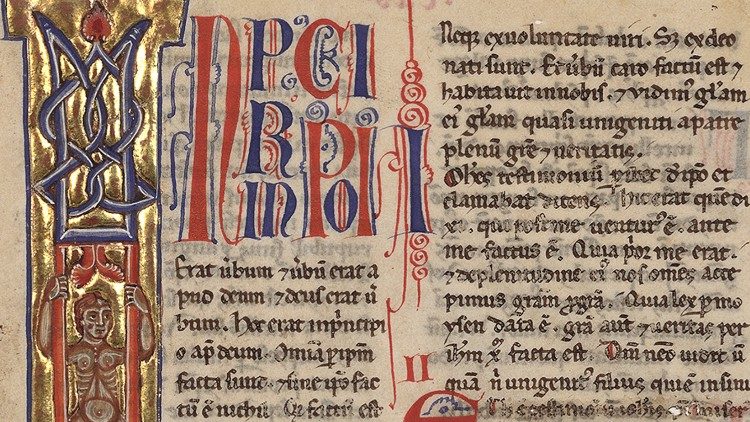 N P CI
R PI
IN O I
Erat ūbum ⁊ ūbū erat a
pud deum ⁊ deus erat ū
bum. Hoc erat inp̄ncipi
o ap̄ deum. Om̄ia p̄ ip̄m
facta sunt ⁊ sine ip̄o fac
tū ē nichil Qd̄ factū est
Neq; ex uoluntate uiri. Sꝫ ex deo
nati sunt. Et ūbū caro factū est ⁊
habitauit in nobis. ⁊ uidim᷒ gl̄am
ei᷒ gl̄am quasi unigeniti a patre
plenū grē ⁊ ueritatis.
testimoniū de ip̄o et
clamabat dicens. hic erat quē di
xi. qui post me uentur᷒ ē. ante
me factus ē. Quia p̄or me erat.
⁊ de plenitudine ei᷒ nos om̄es acce
pimus grām ꝓ grā. Quia lex per mo
ysen data ē. grā aūt ⁊ ueritas per
ih̄m xp̄ facta est. Dm̄ nēo uidit ū
II
quā n̄ unigenit᷒ filius, qui ē in sinu